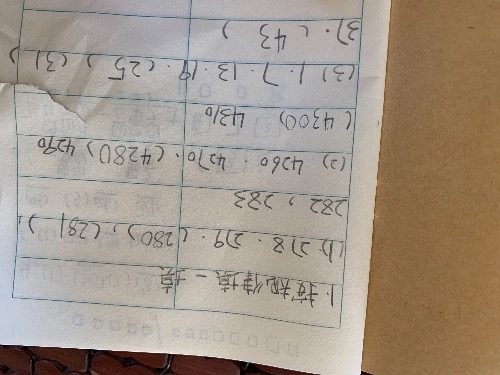 1.按规律填一填
(1). 278. 279. (280), (281),
282, 283
(2) 4260. 4270. (4280), 4290
(4300) 4310
(3) 1. 7. 13. 19. (25), (31)
37. (43)